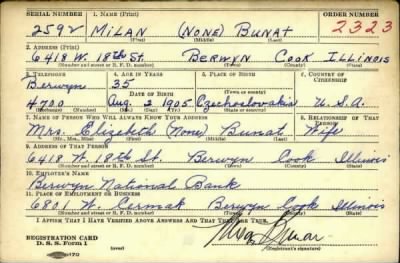 SERIAL NUMBER 1. NAME (Print) ORDER NUMBER
2592 MILAN (NONE) BUNAT 2323
(First) (Middle) (Last)
2. ADDRESS (Print)
6418 W. 18th St. BERWYN COOK ILLINOIS
(Number and street or R. F. D. number) (Town) (County) (State)
3. TELEPHONE 4. AGE IN YEARS 5. PLACE OF BIRTH 6. COUNTRY OF CITIZENSHIP
Berwyn 35
DATE OF BIRTH (Town or county)
4700 Aug. 2 1905 Czechoslovakia U.S.A.
7. NAME OF PERSON WHO WILL ALWAYS KNOW YOUR ADDRESS 8. RELATIONSHIP OF THAT PERSON
Mrs. Elizabeth (None) Bunat Wife
(Mr., Mrs., Miss) (First) (Middle) (Last)
9. ADDRESS OF THAT PERSON
6418 W. 18th St. Berwyn Cook Illinois
(Number and street or R. F. D. number) (Town) (County) (State)
10. EMPLOYER'S NAME
Berwyn National Bank
11. PLACE OF EMPLOYMENT OR BUSINESS
6801 W. Cermak Berwyn Cook Illinois
(Number and street or R. F. D. number) (Town) (County) (State)
I AFFIRM THAT I HAVE VERIFIED ABOVE ANSWERS AND THAT THEY ARE TRUE.
REGISTRATION CARD
D. S. S. Form 1 (over) (Registrant's signature)